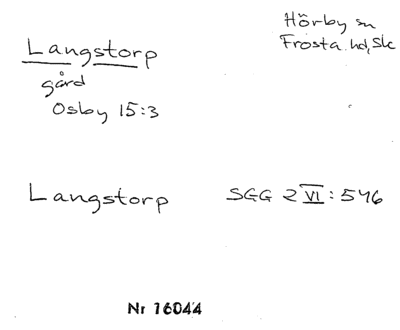 Hörby sn
Frosta hd, Sk
Langstorp
gård
Osby 15:3
Langstorp SGG 2 VI: 546
Nr 16044